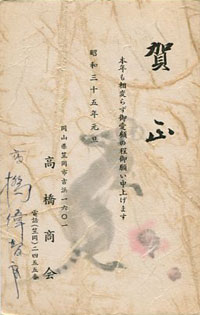 賀正
本年も相変らず御愛顧の程御願い申上げます
昭和三十五年元旦
岡山県笠岡市吉浜一六〇一
高橋商会
電話(笠岡)二四五五番
高橋